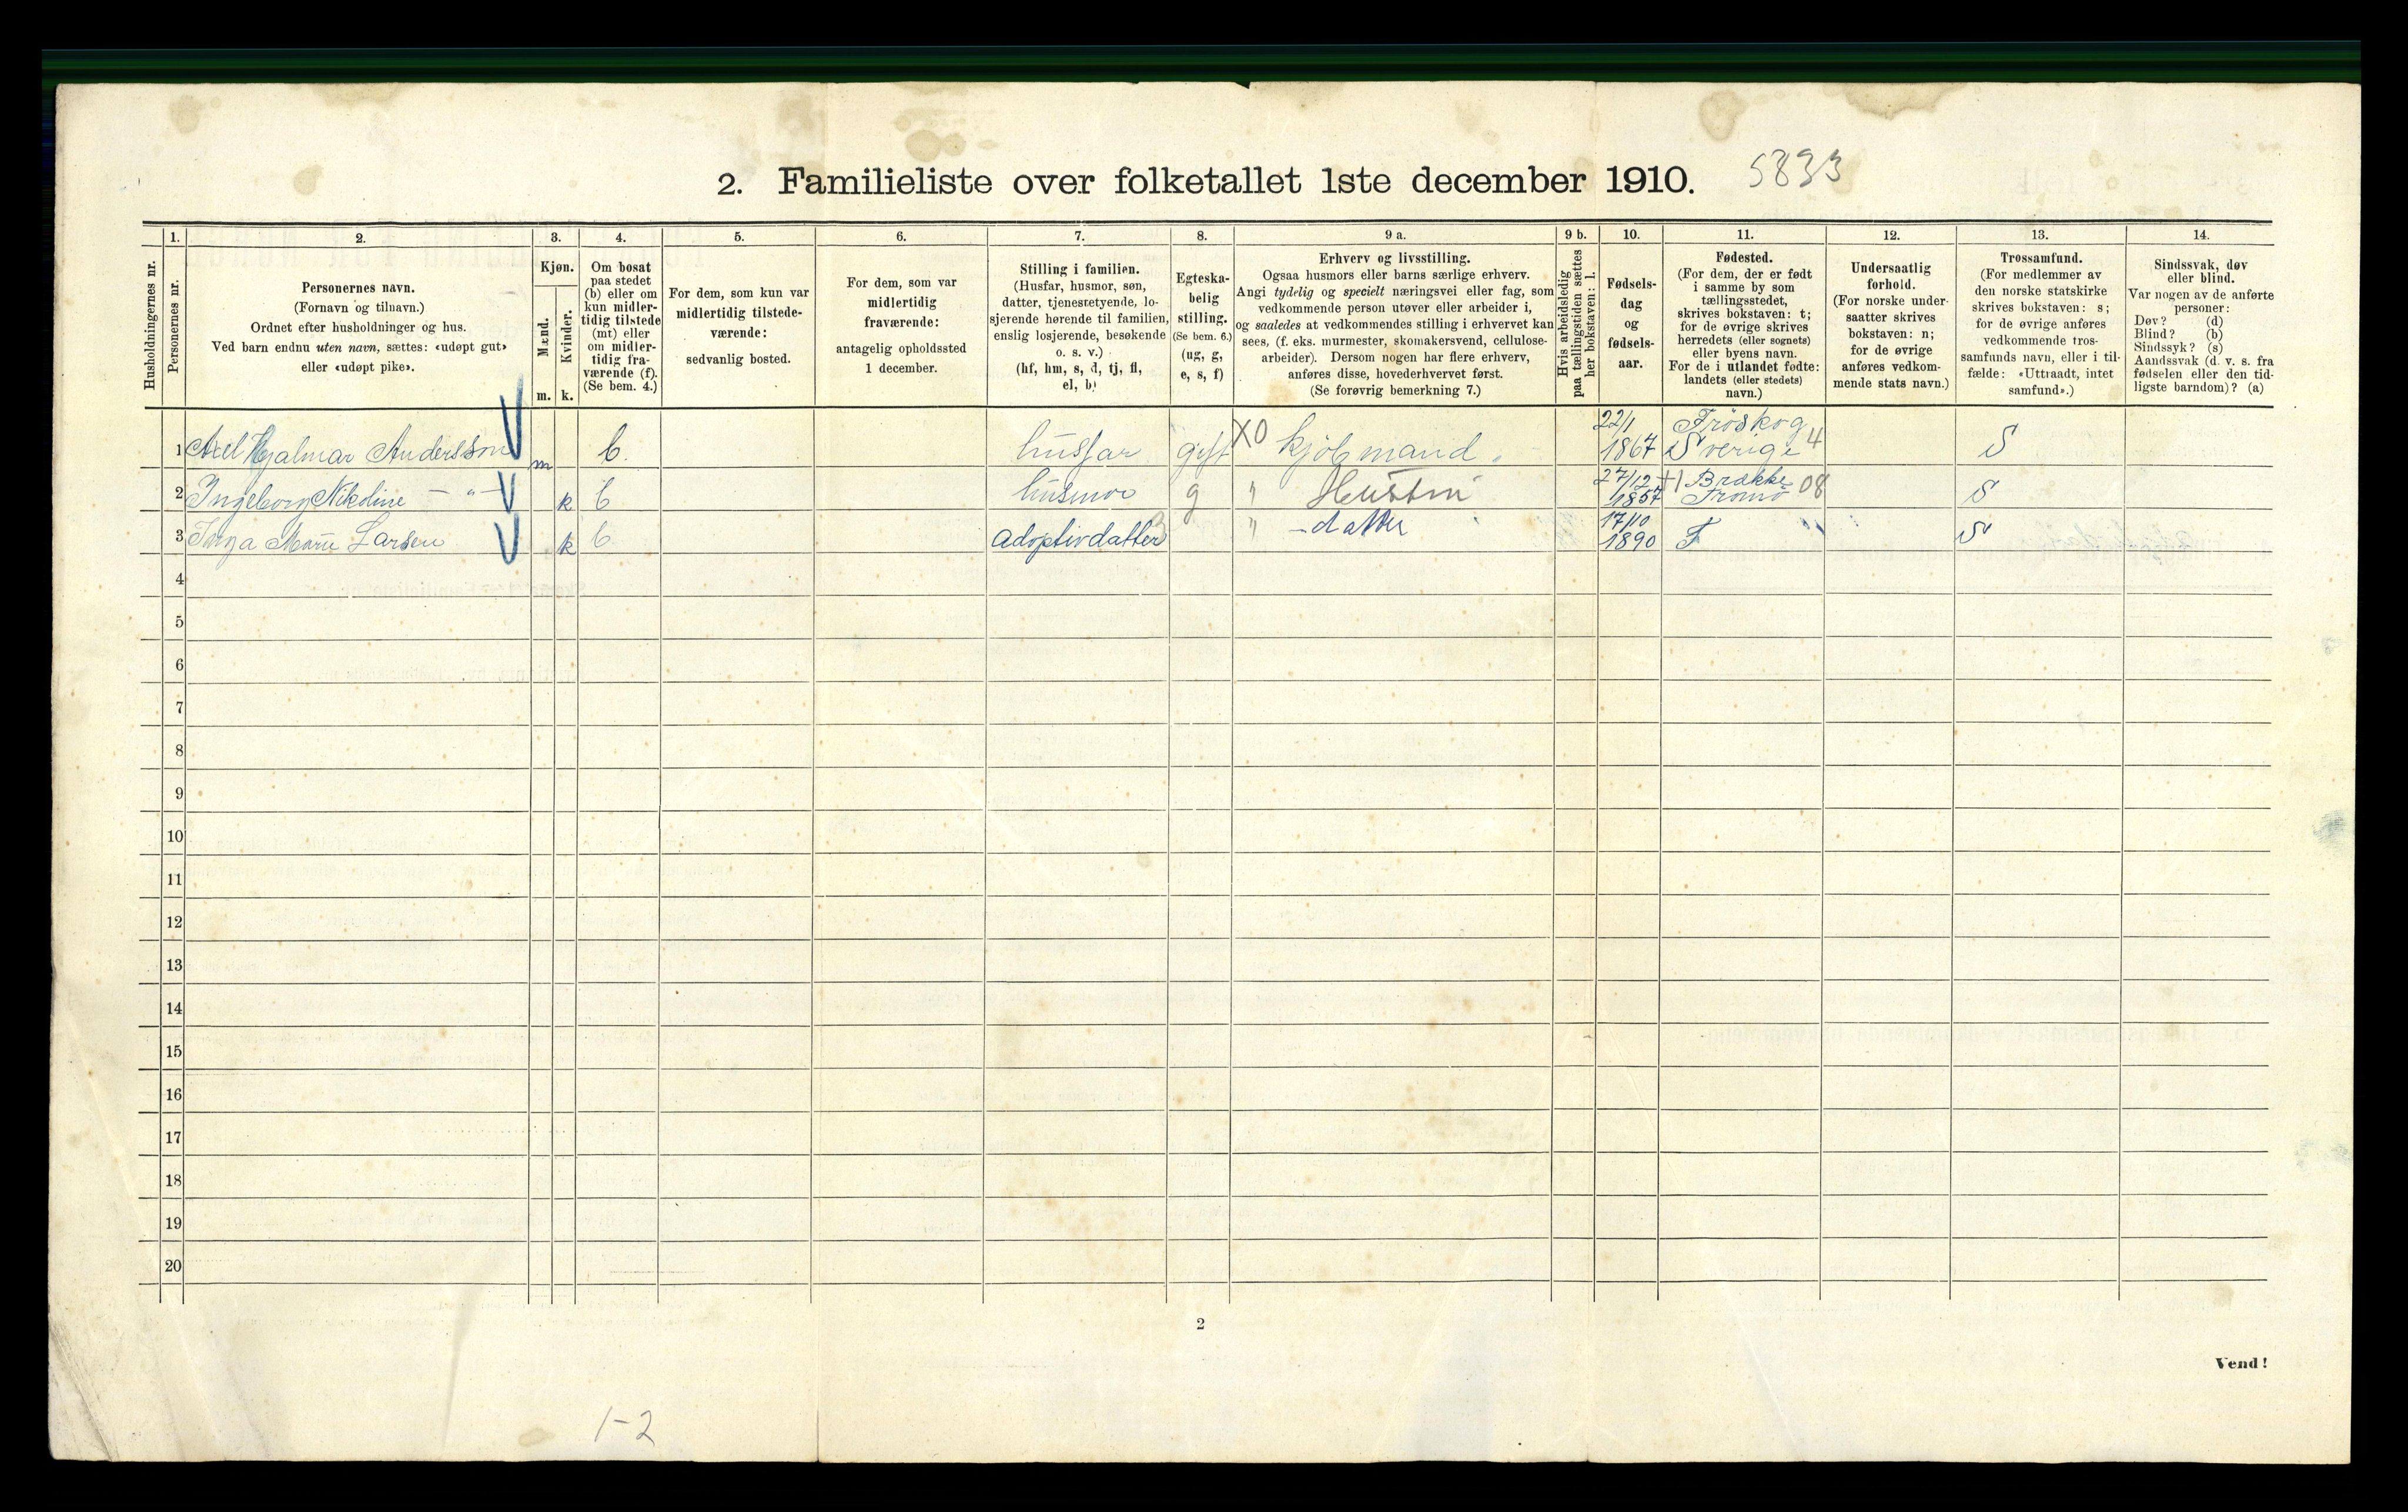 2. Familieliste over folketallet 1ste december 1910. 5833
Husholdningernes nr.
1.
Personernes nr.
2.
Personernes navn.
(Fornavn og tilnavn.)
Ordnet efter husholdninger og hus.
Ved barn endnu uten navn, sættes: «udøpt gut»
eller «udøpt pike».
3.
Kjøn.
Mænd.
Kvinder.
m. k.
4.
Om bosat
paa stedet
(b) eller om
kun midler-
tidig tilstede
(mt) eller
om midler-
tidig fra-
værende (f).
(Se bem. 4.)
5.
For dem, som kun var
midlertidig tilstede-
værende:
sedvanlig bosted.
6.
For dem, som var
midlertidig
fraværende:
antagelig opholdssted
1 december.
7.
Stilling i familien.
(Husfar, husmor, søn,
datter, tjenestetyende, lo-
sjerende hørende til familien,
enslig losjerende, besøkende
o. s. v.)
(hf, hm, s, d, tj, fl,
el, b)
8.
Egteska-
belig
stilling.
(Se bem. 6.)
(ug, g,
e, s, f)
9 a.
Erhverv og livsstilling.
Ogsaa husmors eller barns særlige erhverv.
Angi tydelig og specielt næringsvei eller fag, som
vedkommende person utøver eller arbeider i,
og saaledes at vedkommendes stilling i erhvervet kan
sees, (f. eks. murmester, skomakersvend, cellulose-
arbeider). Dersom nogen har flere erhverv,
anføres disse, hovederhvervet først.
(Se forøvrig bemerkning 7.)
9 b.
Hvis arbeidsledig
paa tællingstiden sættes
her bokstaven: l.
10.
Fødsels-
dag
og
fødsels-
aar.
11.
Fødested.
(For dem, der er født
i samme by som
tællingsstedet,
skrives bokstaven: t;
for de øvrige skrives
herredets (eller sognets)
eller byens navn.
For de i utlandet fødte:
landets (eller stedets)
navn.)
12.
Undersaatlig
forhold.
(For norske under-
saatter skrives
bokstaven: n;
for de øvrige
anføres vedkom-
mende stats navn.)
13.
Trossamfund.
(For medlemmer av
den norske statskirke
skrives bokstaven: s;
for de øvrige anføres
vedkommende tros-
samfunds navn, eller i til-
fælde: «Uttraadt, intet
samfund».)
14.
Sindssvak, døv
eller blind.
Var nogen av de anførte
personer:
Døv? (d)
Blind? (b)
Sindssyk? (s)
Aandssvak (d. v. s. fra
fødselen eller den tid-
ligste barndom)? (a)
1 Axel Hjalmar Andersson m b. husfar gift X0 kjøbmand 22/1 1867 Fröskog Sverige 4 S
2 Ingeborg Nikoline — " — k b husmor g " Hustru 27/12 1857 Brække Tromø 08 S
3 Inga Marie Larsen k b adoptivdatter " - datter 17/10 1890 T S
4
5
6
7
8
9
10
11
12
13
14
15
16
17
18
19
20
2
Vend!
1-2